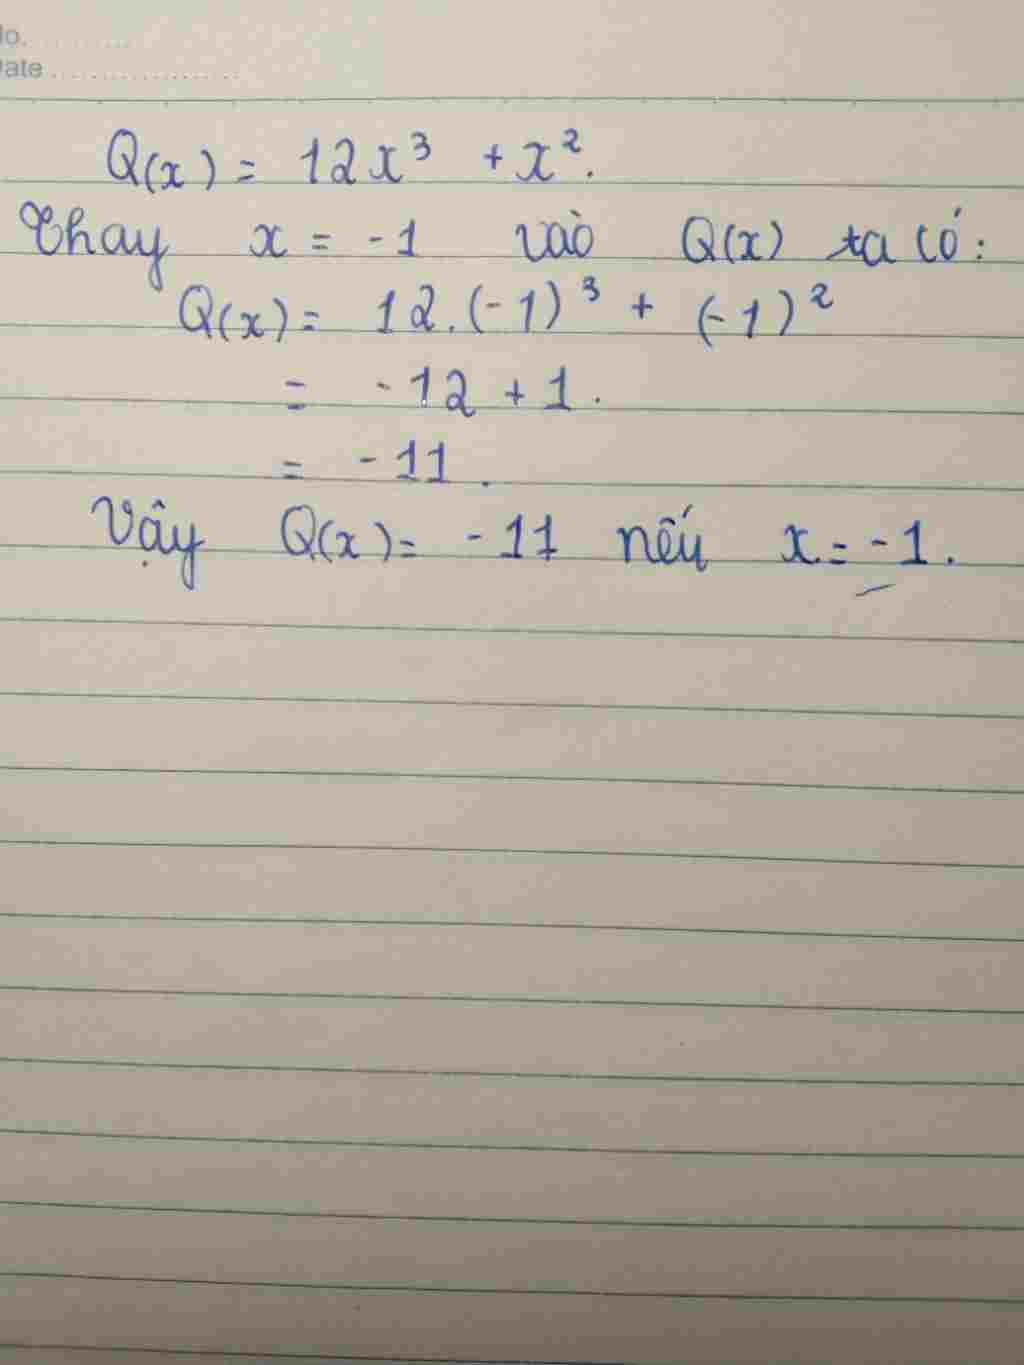 No. ...........
Date ......................
Q(x) = 12x³ + x².
Thay x = -1 vào Q(x) ta có:
Q(x) = 12.(-1)³ + (-1)²
= -12 + 1.
= -11.
Vậy Q(x) = -11 nếu x = -1.